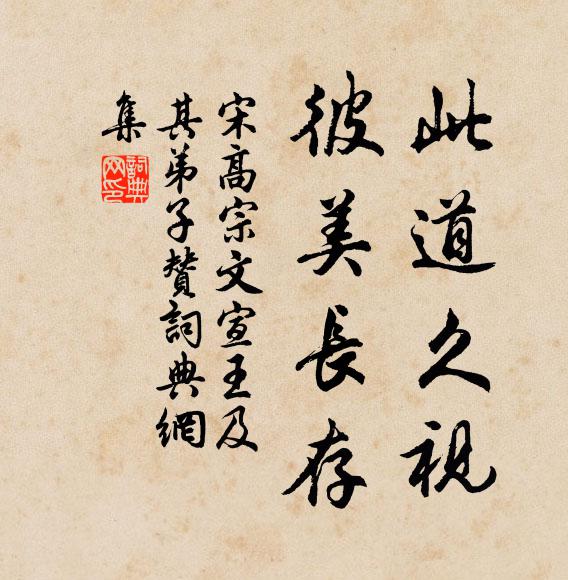 此道久視
彼美長存
宋高宗文宣王及
其弟子贊詞典網
集
詞典
网印